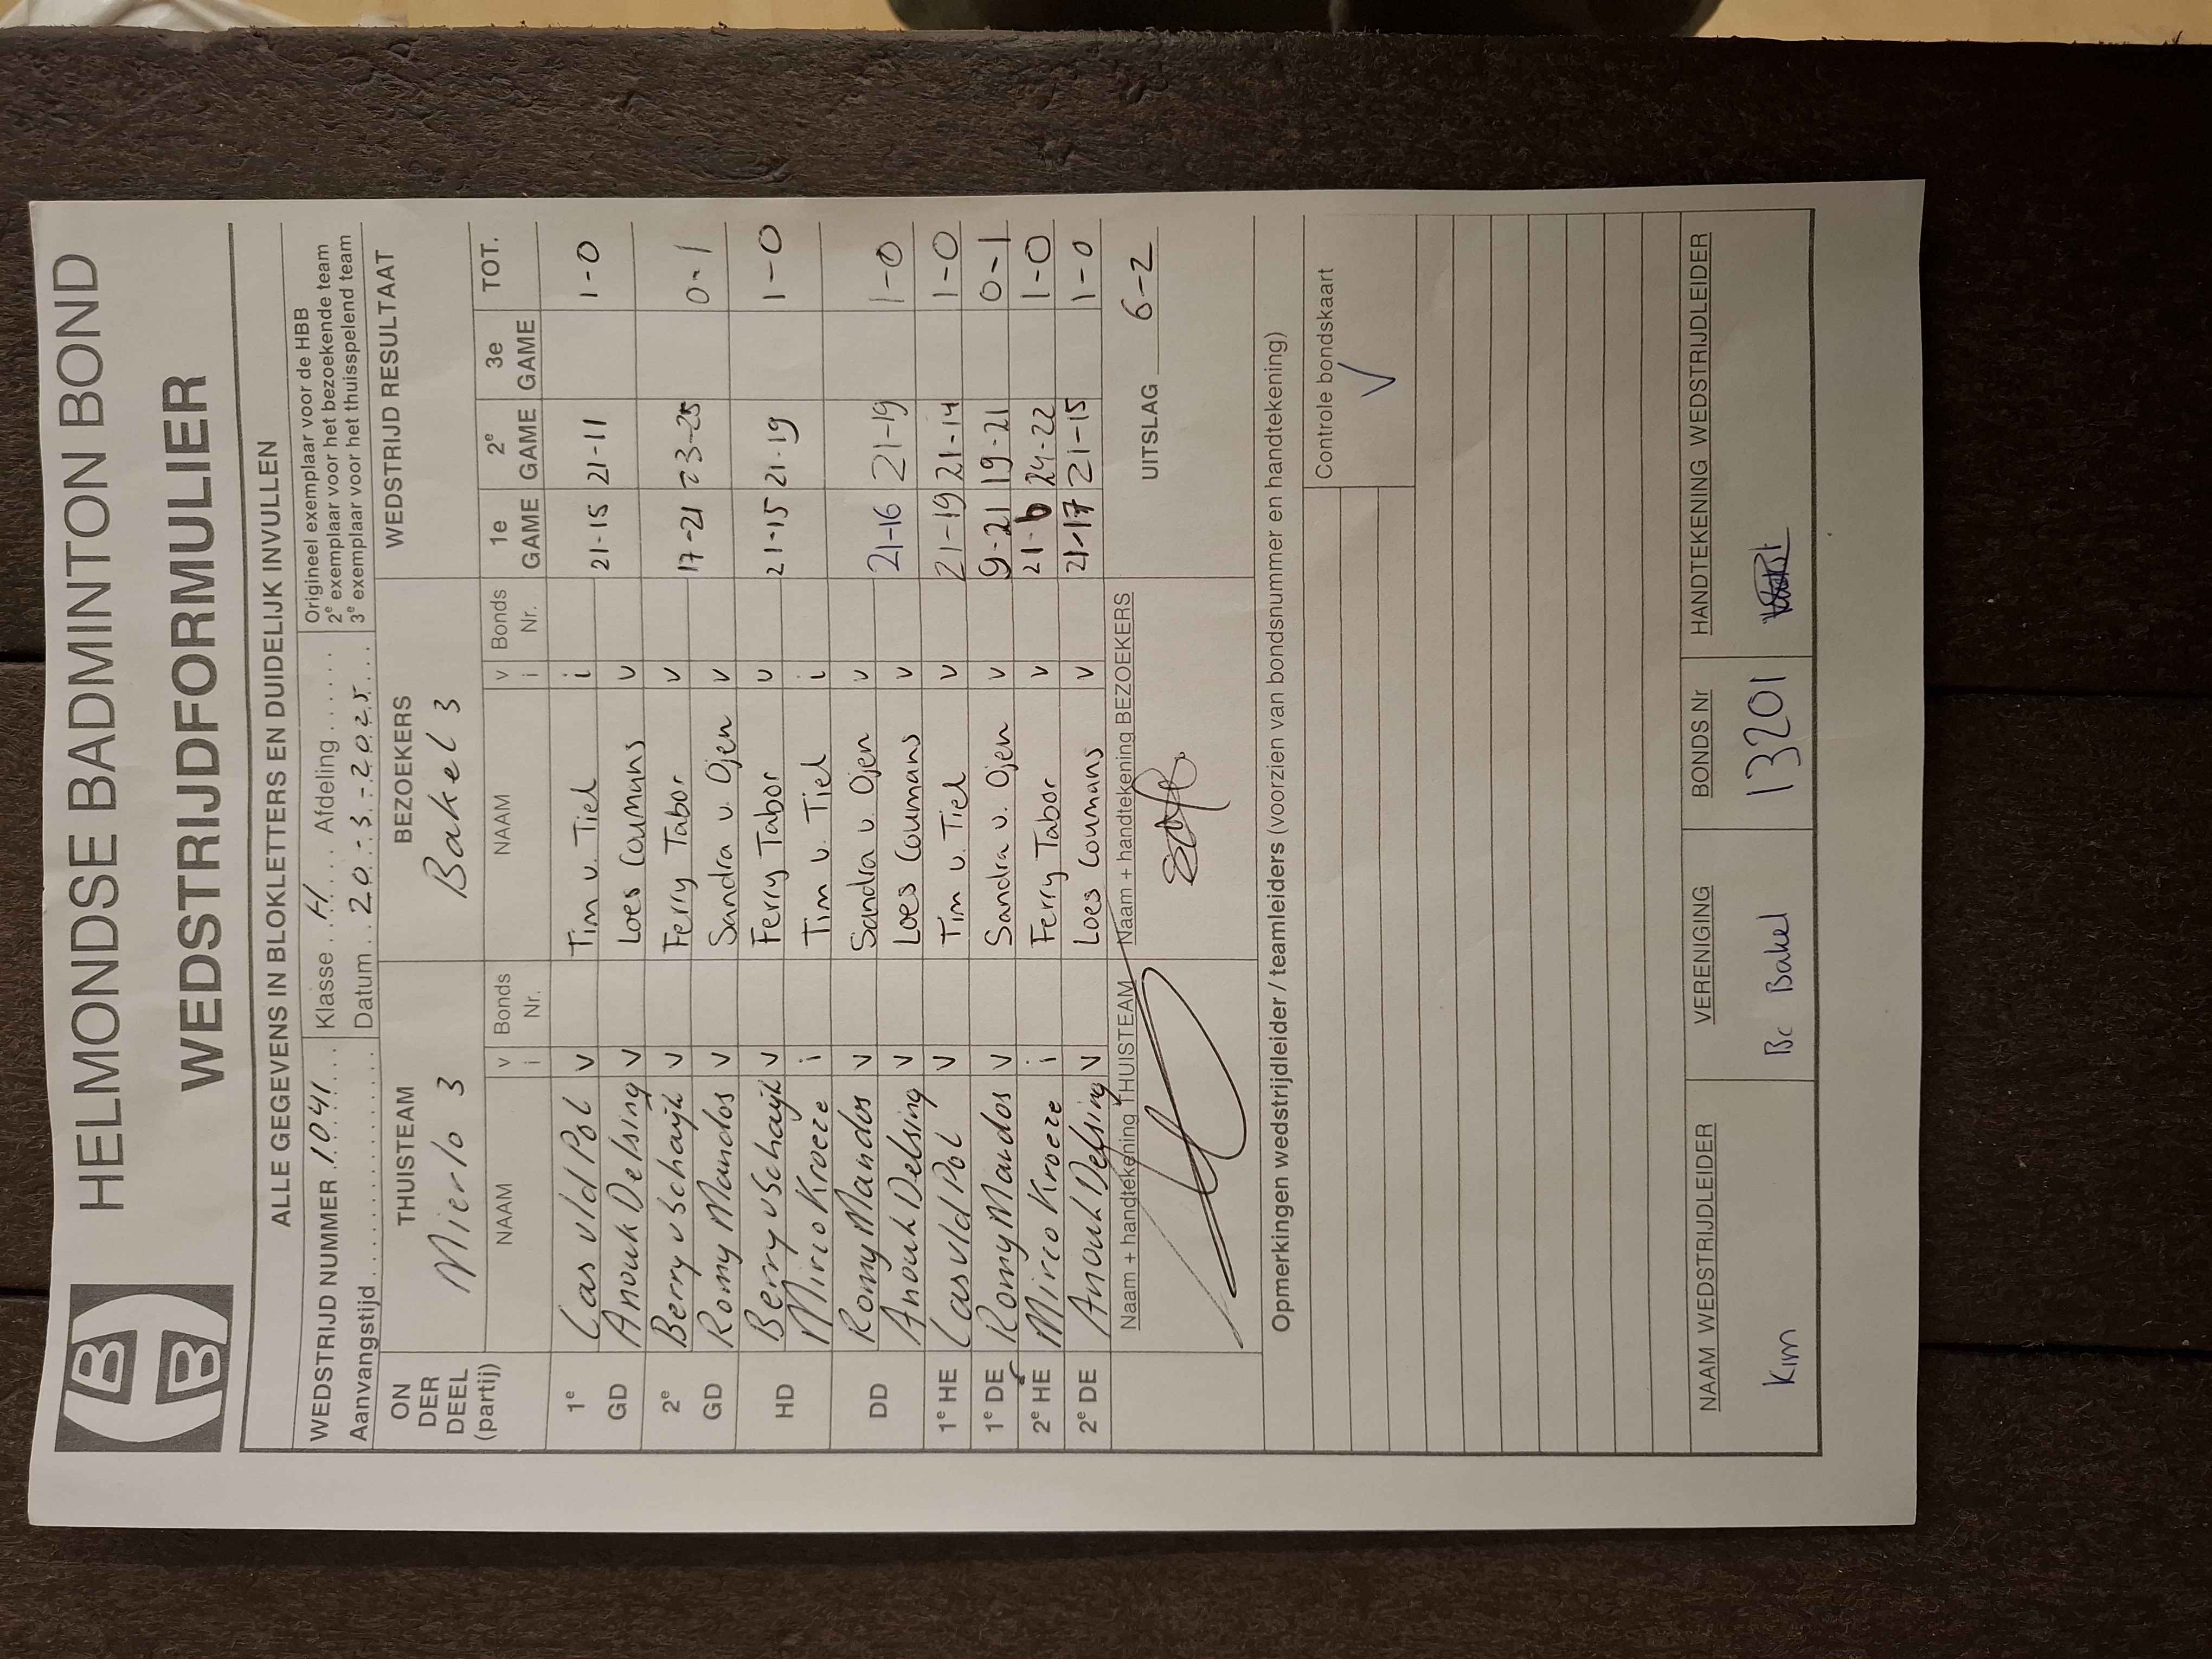 HBB
HELMONDSE BADMINTON BOND
WEDSTRIJDFORMULIER
ALLE GEGEVENS IN BLOKLETTERS EN DUIDELIJK INVULLEN
WEDSTRIJD NUMMER 1041 Klasse H Afdeling Origineel exemplaar voor de HBB
2e exemplaar voor het bezoekende team
Aanvangstijd Datum 20-3-2025 3e exemplaar voor het thuisspelend team
ON DER DEEL (partij) THUISTEAM BEZOEKERS WEDSTRIJD RESULTAAT
Mierlo 3 Bakel 3
NAAM v i Bonds Nr. NAAM v i Bonds Nr. 1e GAME 2e GAME 3e GAME TOT.
1e Cas vld Pol v Tim v. Tiel i 21-15 21-11 1-0
GD Anouk Delsing v Loes Coumans v
2e Berry v Schayk v Ferry Tabor v 17-21 23-25 0-1
GD Romy Mandos v Sandra v. Ojen v
HD Berry v Schayk v Ferry Tabor v 21-15 21-19 1-0
Mirco Kroeze i Tim v. Tiel i
DD Romy Mandos v Sandra v. Ojen v 21-16 21-19 1-0
Anouk Delsing v Loes Coumans v
1e HE Cas vld Pol v Tim v. Tiel v 21-19 21-14 1-0
1e DE Romy Mandos v Sandra v. Ojen v 9-21 19-21 0-1
2e HE Mirco Kroeze i Ferry Tabor v 21-6 24-22 1-0
2e DE Anouk Delsing v Loes Coumans v 21-17 21-15 1-0
Naam + handtekening THUISTEAM Naam + handtekening BEZOEKERS UITSLAG 6-2
Opmerkingen wedstrijdleider / teamleiders (voorzien van bondsnummer en handtekening)
Controle bondskaart
V
NAAM WEDSTRIJDLEIDER VERENIGING BONDS Nr HANDTEKENING WEDSTRIJDLEIDER
Kim Bc Bakel 13201